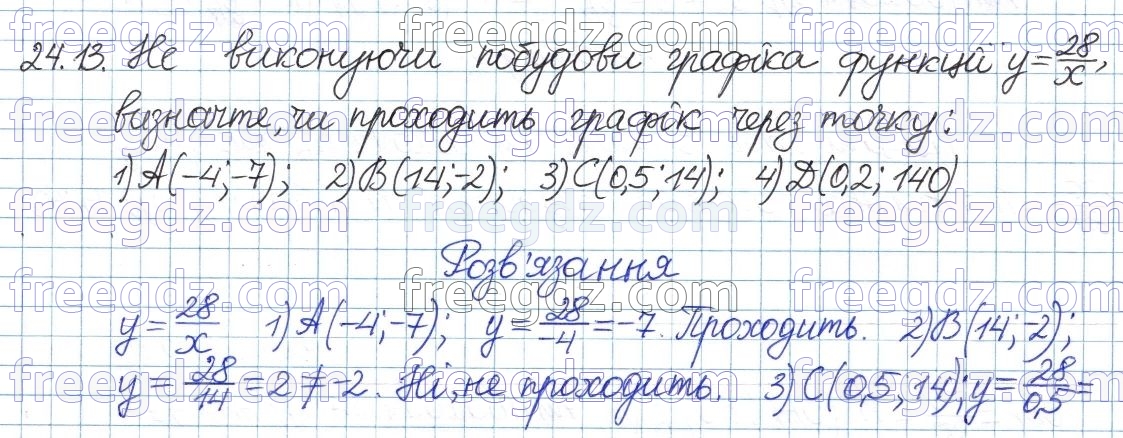 24.13. Не виконуючи побудови графіка функції y=28/x,
визначте, чи проходить графік через точку:
1) A(-4;-7); 2) B(14;-2); 3) C(0,5;14); 4) D(0,2; 140)
Розв'язання
y=28/x 1) A(-4;-7); y=28/-4=-7. Проходить. 2) B(14;-2);
y=28/14=2≠-2. Ні, не проходить. 3) C(0,5;14); y=28/0,5=